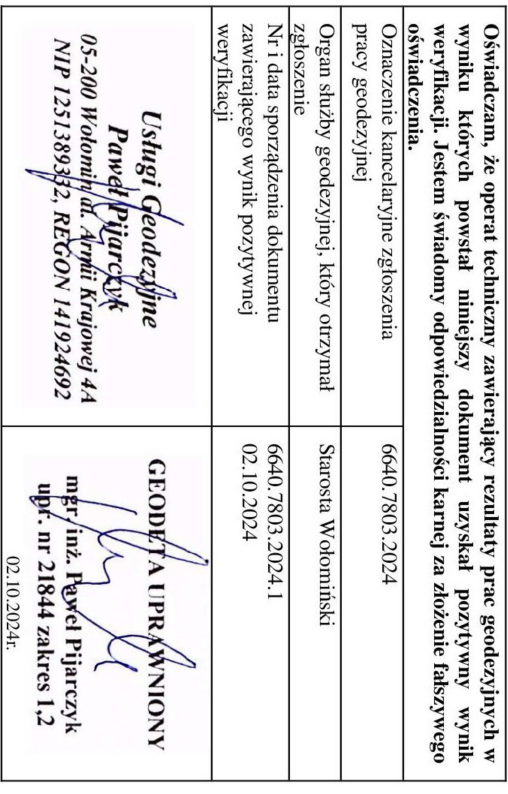 Oświadczam, że operat techniczny zawierający rezultaty prac geodezyjnych w
wyniku których powstał niniejszy dokument uzyskał pozytywny wynik
weryfikacji. Jestem świadomy odpowiedzialności karnej za złożenie fałszywego
oświadczenia.
Oznaczenie kancelaryjne zgłoszenia
pracy geodezyjnej
6640.7803.2024
Organ służby geodezyjnej, który otrzymał
zgłoszenie
Starosta Wołomiński
Nr i data sporządzenia dokumentu
zawierającego wynik pozytywnej
weryfikacji
6640.7803.2024.1
02.10.2024
Usługi Geodezyjne
Paweł Pijarczyk
05-200 Wołomin, al. Armii Krajowej 4A
NIP 1251389332, REGON 141924692
GEODETA UPRAWNIONY
mgr inż. Paweł Pijarczyk
upr. nr 21844 zakres 1,2
02.10.2024r.